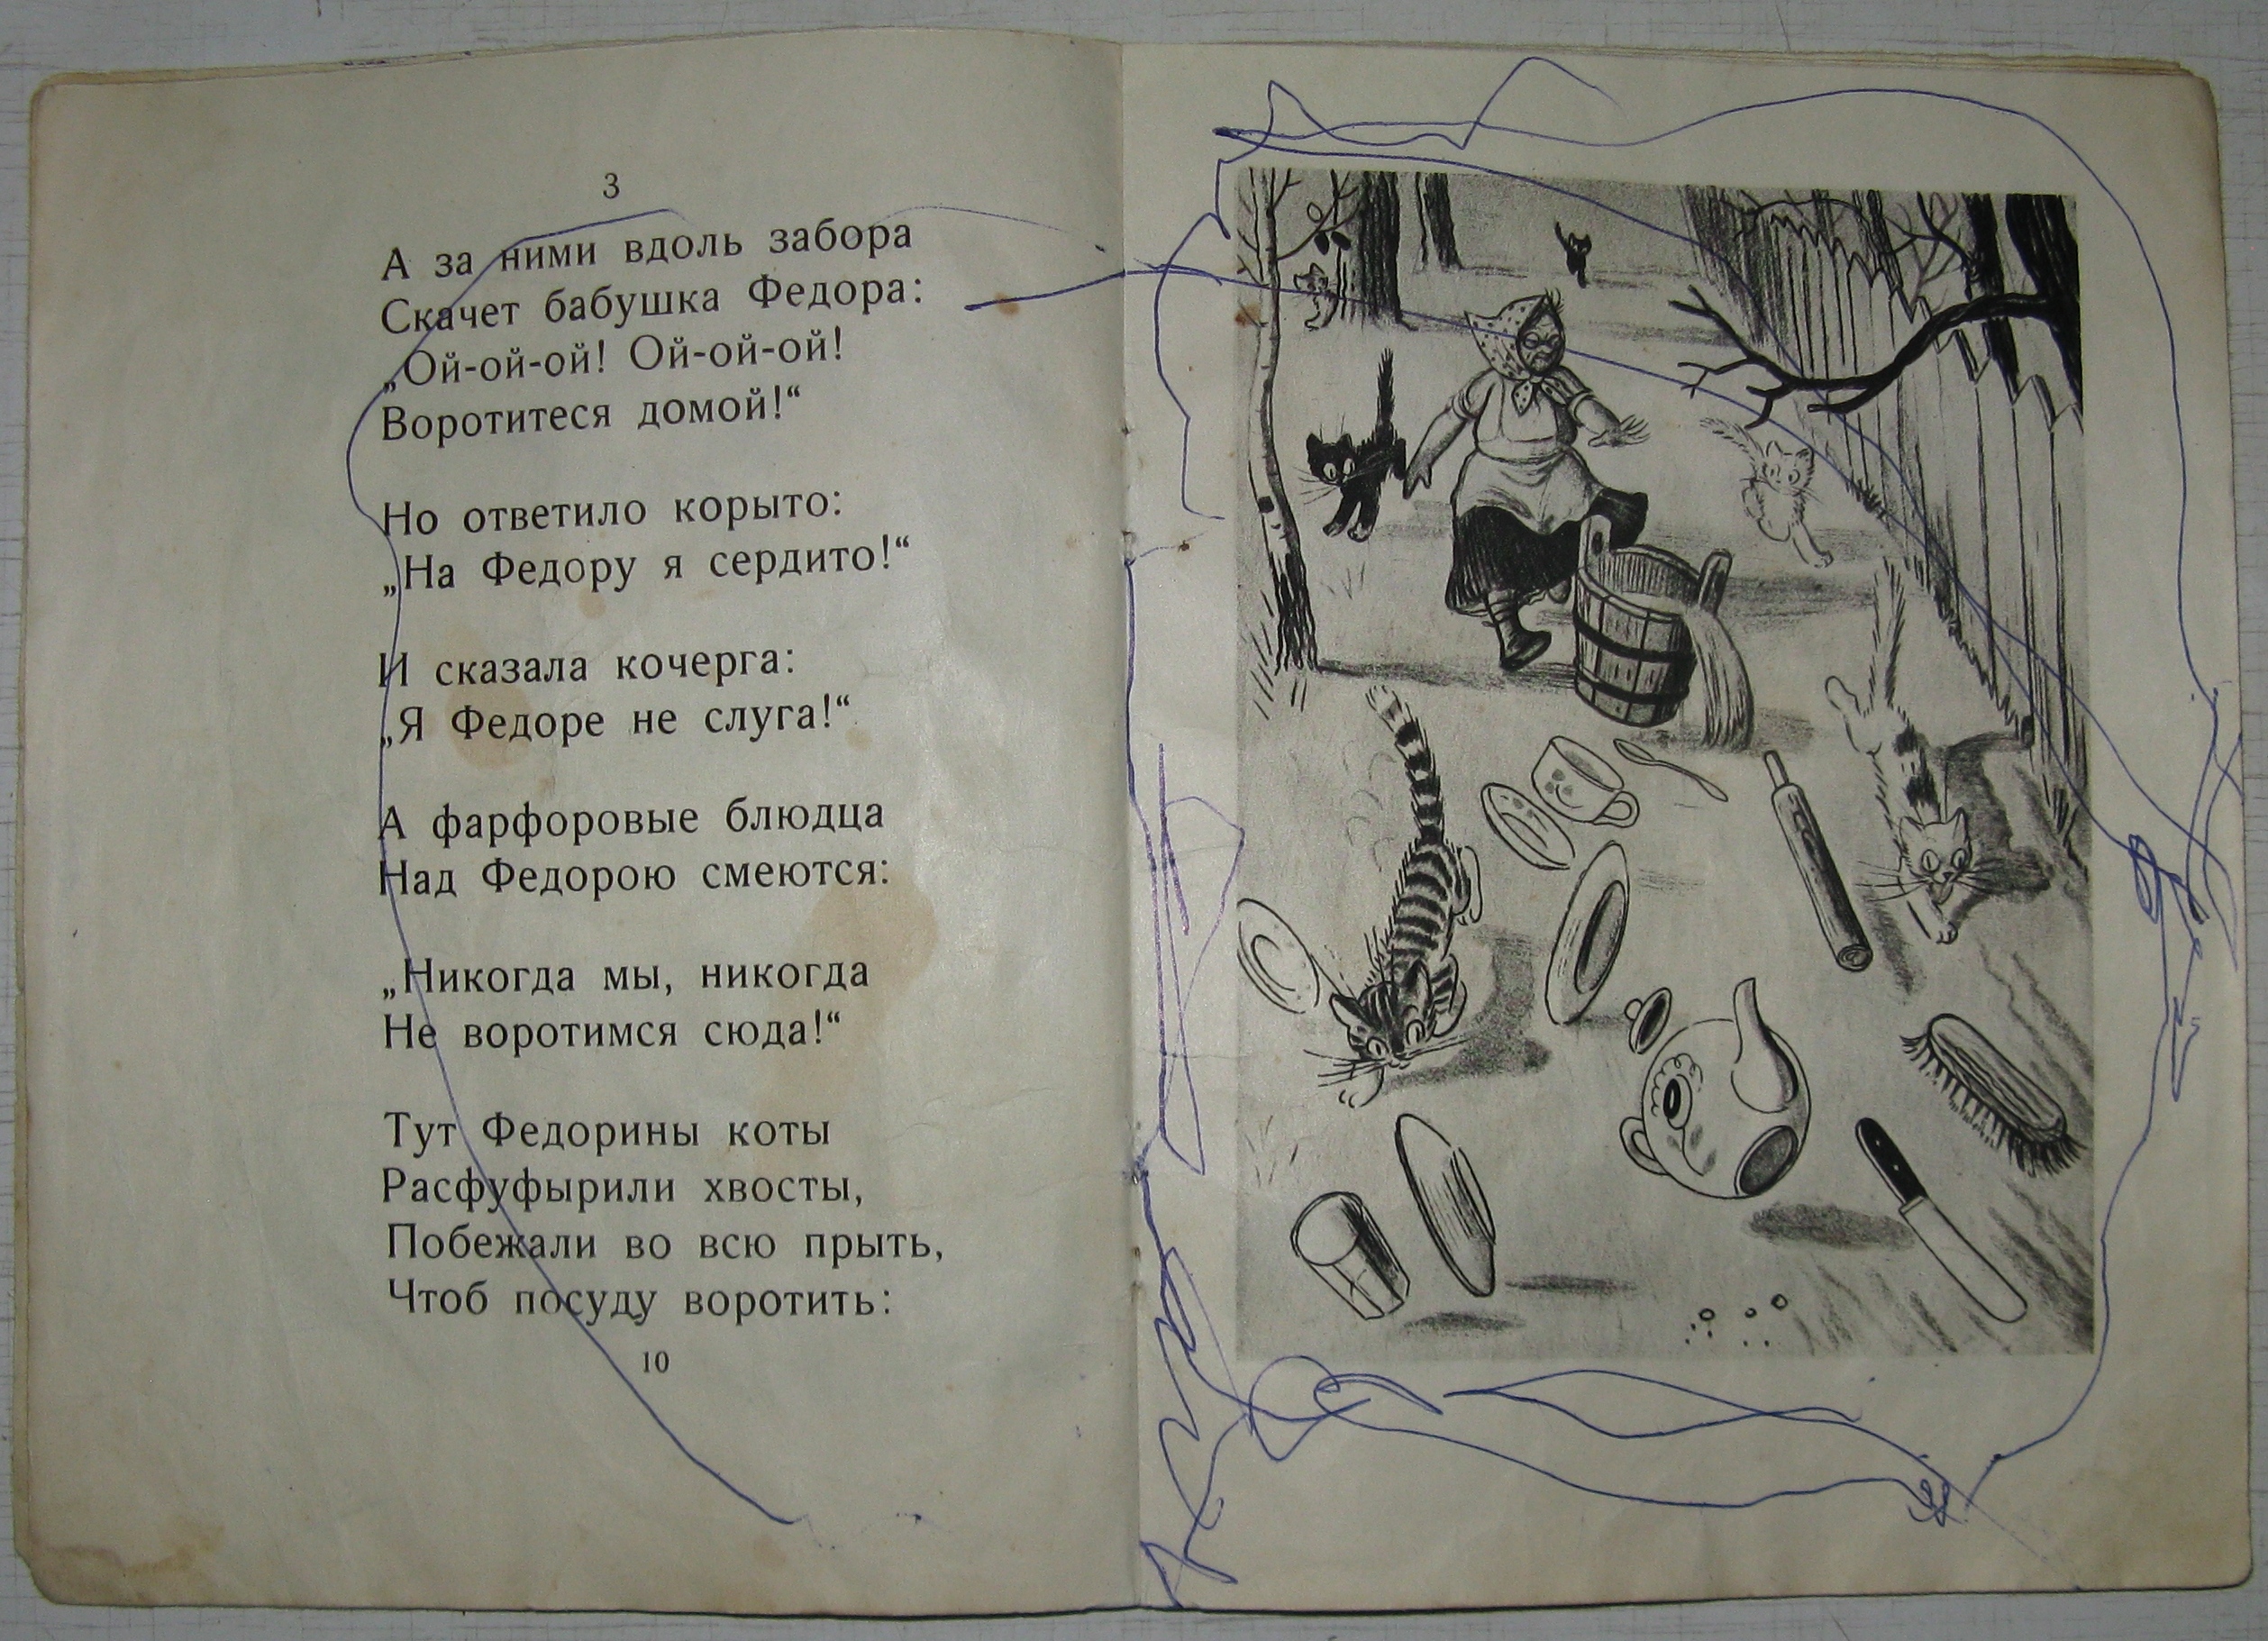 3
А за ними вдоль забора
Скачет бабушка Федора:
„Ой-ой-ой! Ой-ой-ой!
Воротитеся домой!“
Но ответило корыто:
„На Федору я сердито!“
И сказала кочерга:
„Я Федоре не слуга!“
А фарфоровые блюдца
Над Федорою смеются:
„Никогда мы, никогда
Не воротимся сюда!“
Тут Федорины коты
Расфуфырили хвосты,
Побежали во всю прыть,
Чтоб посуду воротить:
10